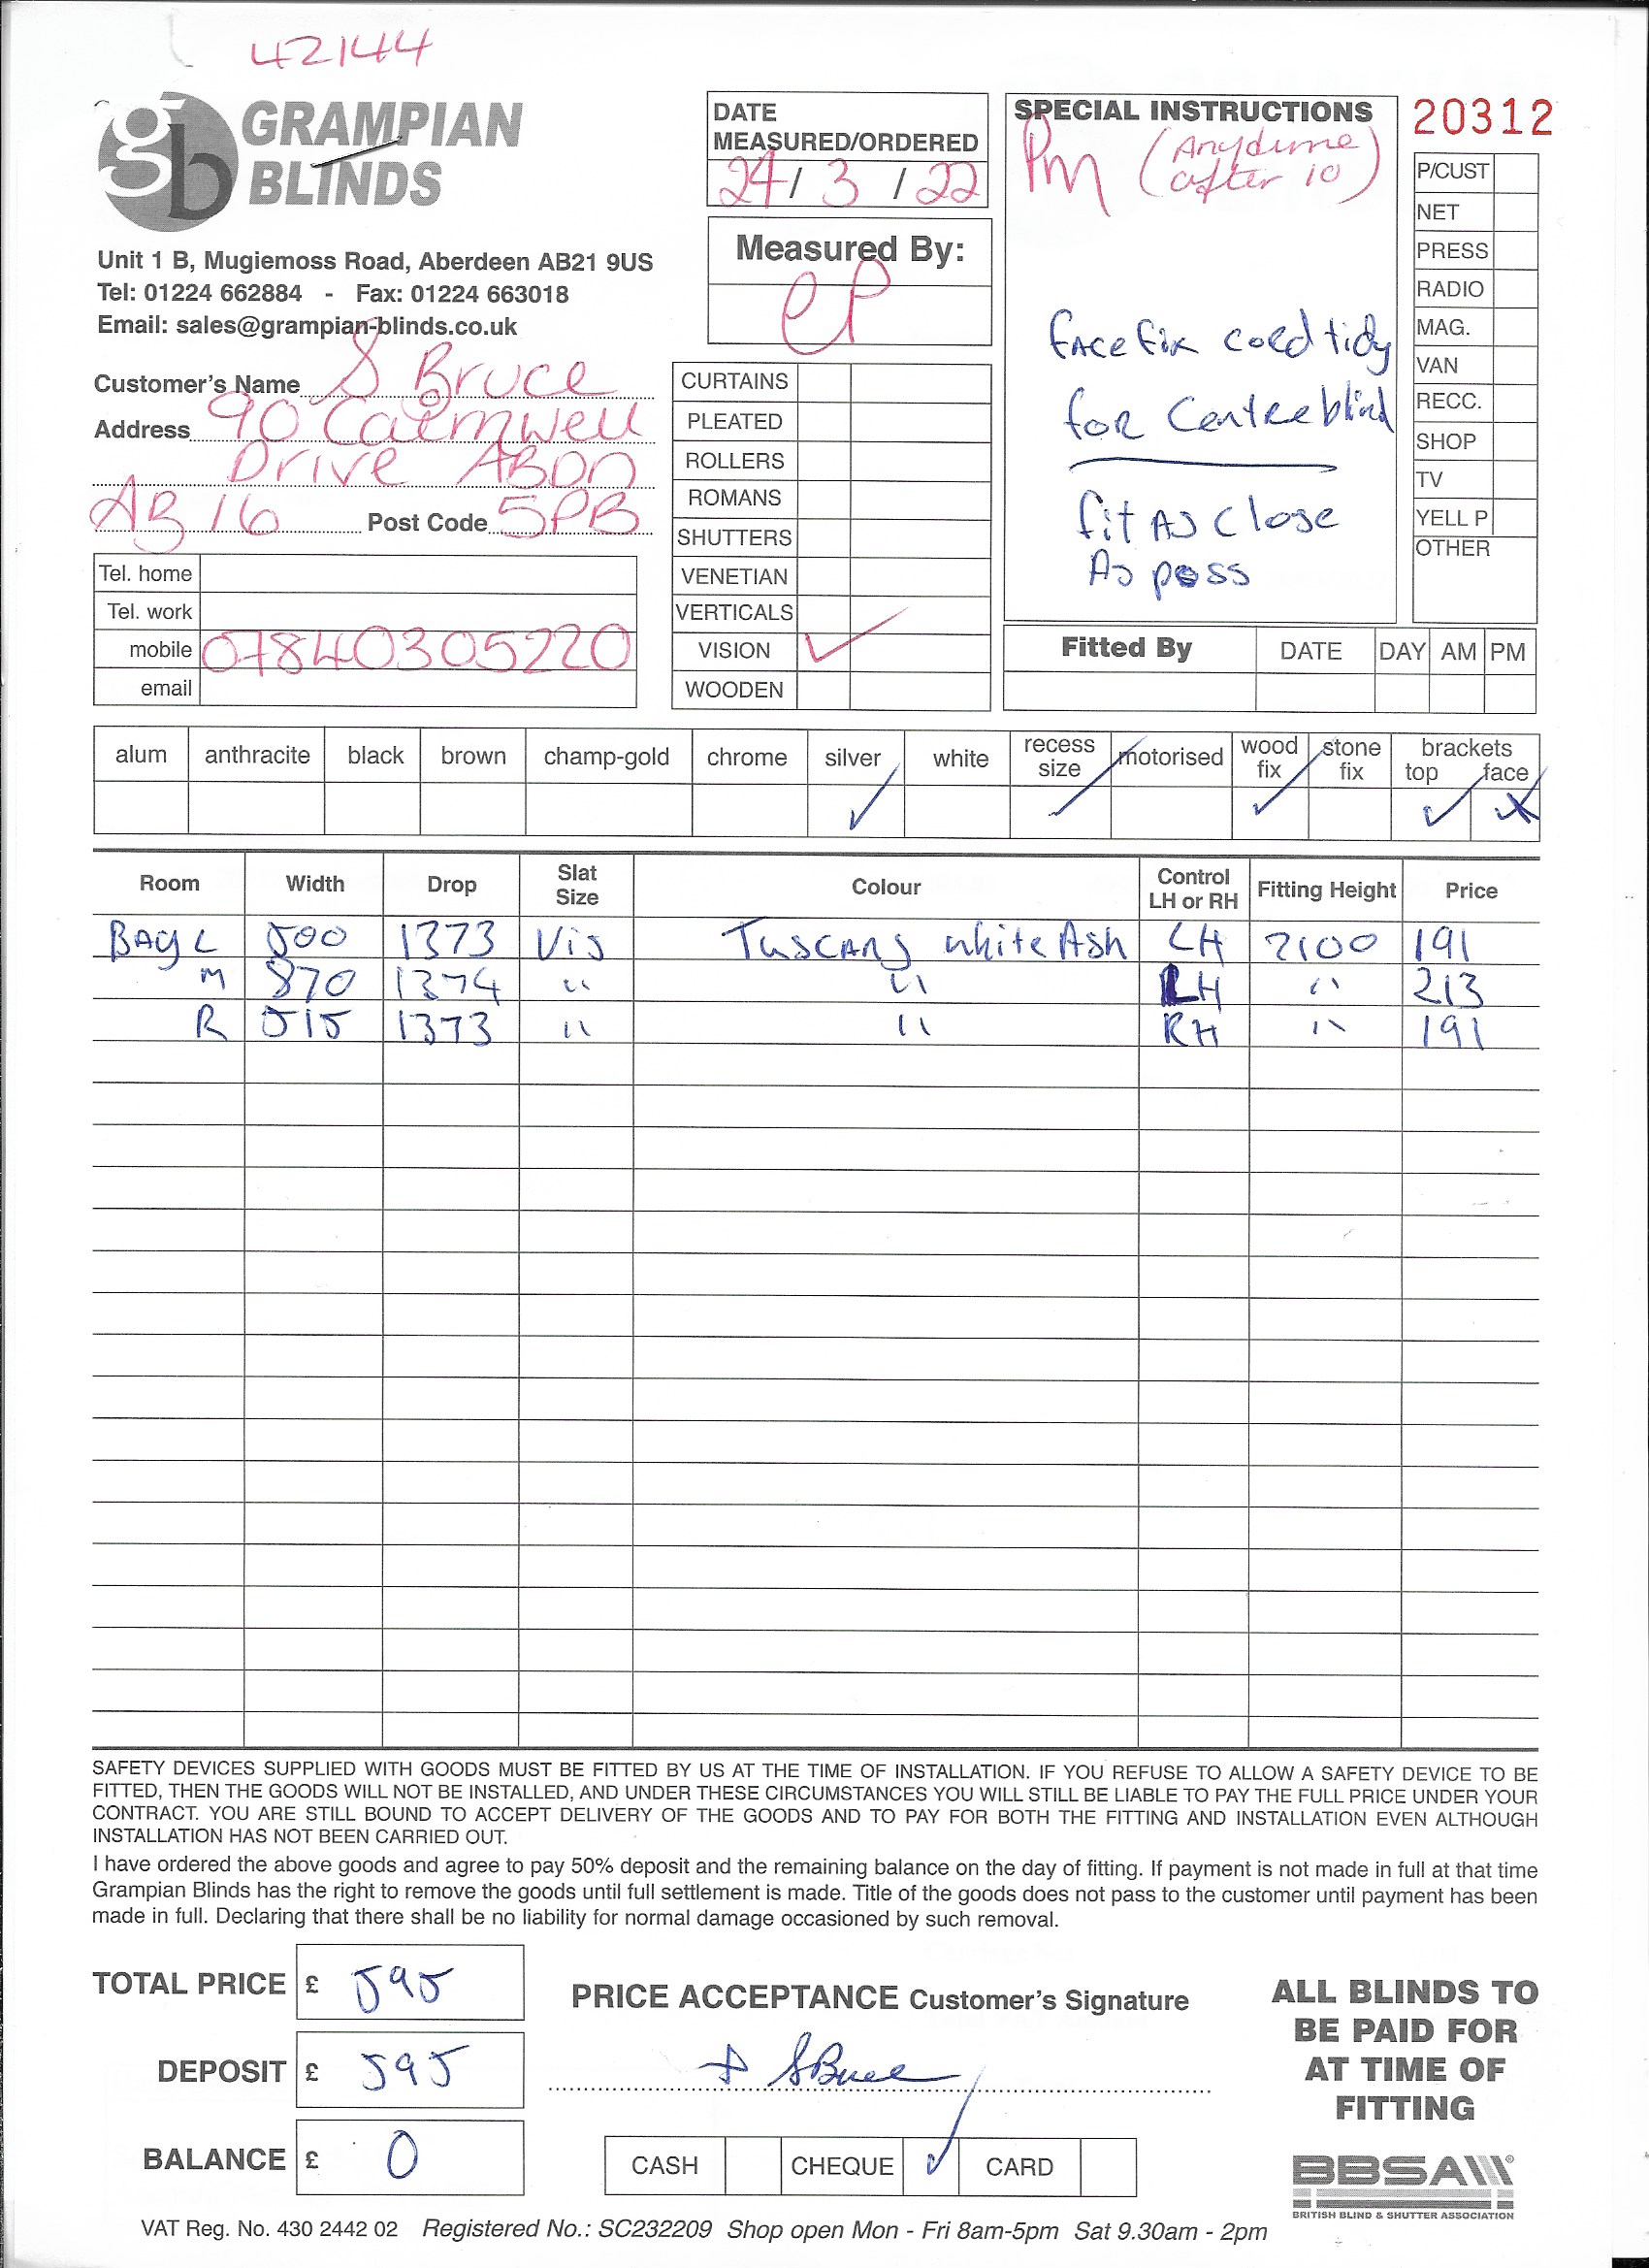 42144
gb GRAMPIAN
BLINDS
Unit 1 B, Mugiemoss Road, Aberdeen AB21 9US
Tel: 01224 662884 - Fax: 01224 663018
Email: sales@grampian-blinds.co.uk
Customer's Name S Bruce
Address 90 Cairnwell
Drive ABDN
AB 16 Post Code 5PB
Tel. home
Tel. work
mobile 07840305220
email
DATE
MEASURED/ORDERED
24/ 3 / 22
Measured By:
CP
CURTAINS
PLEATED
ROLLERS
ROMANS
SHUTTERS
VENETIAN
VERTICALS
VISION ✓
WOODEN
SPECIAL INSTRUCTIONS
Pm (Anytime
after 10)
face fix cord tidy
for Centre blind
fit As Close
As poss
20312
P/CUST
NET
PRESS
RADIO
MAG.
VAN
RECC.
SHOP
TV
YELL P
OTHER
Fitted By DATE DAY AM PM
alum anthracite black brown champ-gold chrome silver white recess size motorised wood fix stone fix brackets top face
✓ ✓ ✓ ✓
Room Width Drop Slat Size Colour Control LH or RH Fitting Height Price
BAY L 500 1373 Vis Tuscany white Ash LH 2100 191
M 870 1374 " " LH " 213
R 515 1373 " " RH " 191
SAFETY DEVICES SUPPLIED WITH GOODS MUST BE FITTED BY US AT THE TIME OF INSTALLATION. IF YOU REFUSE TO ALLOW A SAFETY DEVICE TO BE
FITTED, THEN THE GOODS WILL NOT BE INSTALLED, AND UNDER THESE CIRCUMSTANCES YOU WILL STILL BE LIABLE TO PAY THE FULL PRICE UNDER YOUR
CONTRACT. YOU ARE STILL BOUND TO ACCEPT DELIVERY OF THE GOODS AND TO PAY FOR BOTH THE FITTING AND INSTALLATION EVEN ALTHOUGH
INSTALLATION HAS NOT BEEN CARRIED OUT.
I have ordered the above goods and agree to pay 50% deposit and the remaining balance on the day of fitting. If payment is not made in full at that time
Grampian Blinds has the right to remove the goods until full settlement is made. Title of the goods does not pass to the customer until payment has been
made in full. Declaring that there shall be no liability for normal damage occasioned by such removal.
TOTAL PRICE £ 595
DEPOSIT £ 595
BALANCE £ 0
PRICE ACCEPTANCE Customer's Signature
x SBruce
CASH CHEQUE ✓ CARD
ALL BLINDS TO
BE PAID FOR
AT TIME OF
FITTING
BBSA
BRITISH BLIND & SHUTTER ASSOCIATION
VAT Reg. No. 430 2442 02 Registered No.: SC232209 Shop open Mon - Fri 8am-5pm Sat 9.30am - 2pm